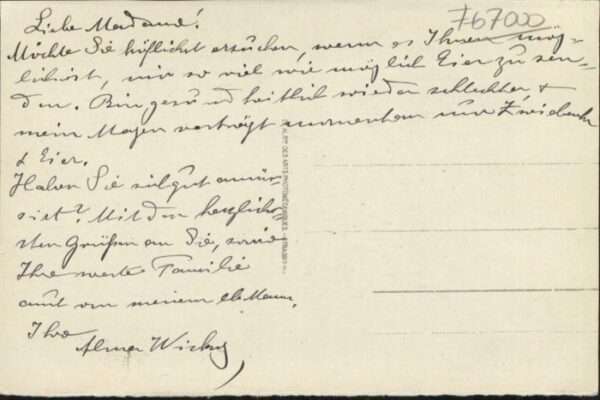 767000
Liebe Madame!
Möchte Sie höflichst ersuchen, wenn es Ihnen mög-
lich ist, mir so viel wie möglich Eier zu sen-
den. Bin gesundheitlich wieder schlechter &
mein Magen verträgt momentan nur Zwieback
& Eier.
Haben Sie sich gut amü-
siert? Mit den herzlich-
sten Grüßen an Sie, sowie
Ihre werte Familie
auch von meinem Mann,
Ihre
Alma